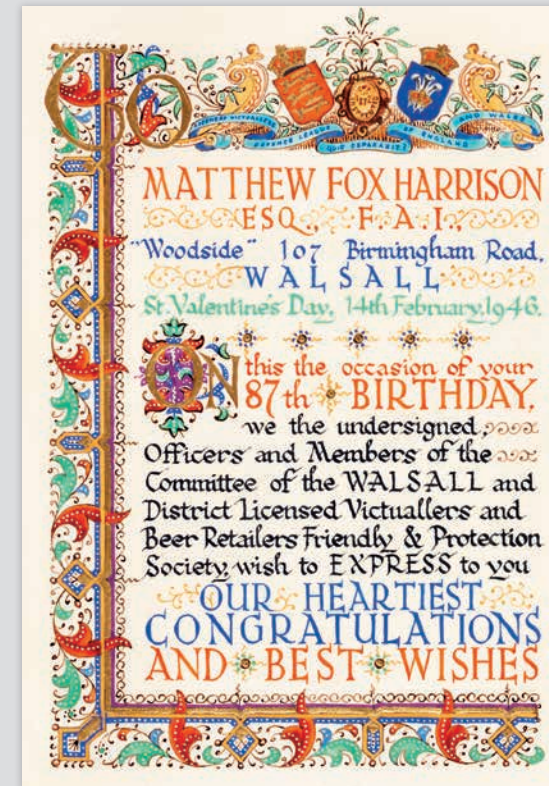 To
LICENSED VICTUALLERS
DEFENCE LEAGUE
OF ENGLAND
AND WALES
QUIS SEPARABIT
MATTHEW FOX HARRISON
ESQ., F.A.I.
"Woodside" 107 Birmingham Road,
WALSALL
St. Valentine's Day, 14th February, 1946.
ON this the occasion of your
87th BIRTHDAY,
we the undersigned,
Officers and Members of the
Committee of the WALSALL and
District Licensed Victuallers and
Beer Retailers Friendly & Protection
Society, wish to EXPRESS to you
OUR HEARTIEST
CONGRATULATIONS
AND BEST WISHES